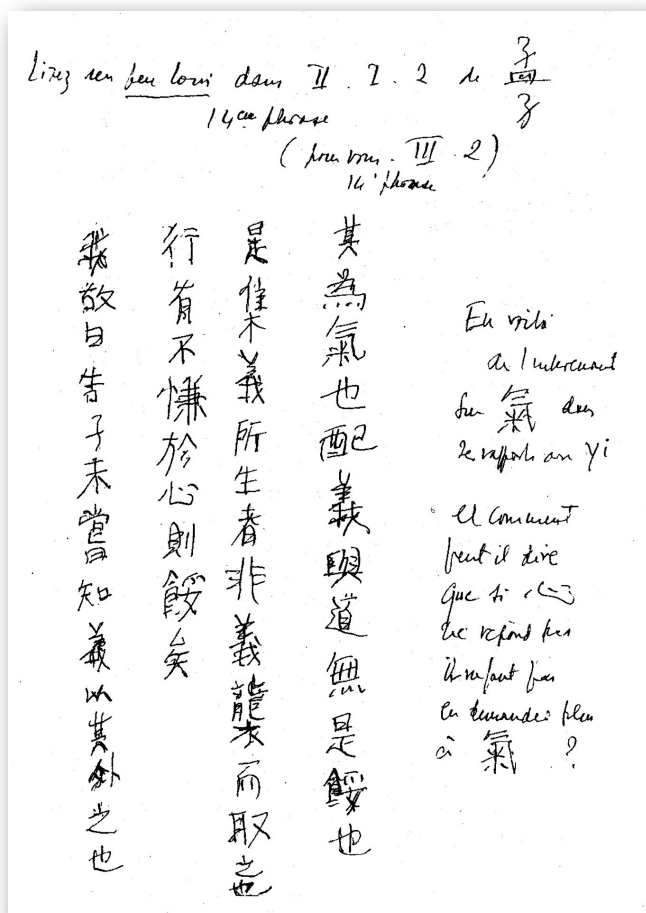 Lisez un peu loin dans II . I . 2 de 孟子
14ème phrase
(pour vous . III . 2)
14e phrase
其為氣也配義與道無是餒也
是集義所生者非義襲而取之也
行有不慊於心則餒矣
我故曰告子未嘗知義以其外之也
En voilà
de l'intéressant
sur 氣 dans
le rapport au Yi
et comment
peut il dire
que si 心
ne répond pas
il ne faut pas
en demander plus
à 氣 ?